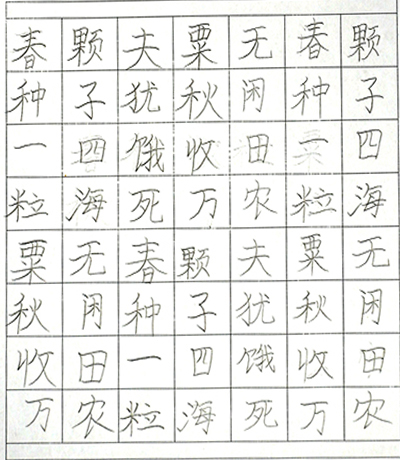 春颗夫粟无春颗
种子犹秋闲种子
一四饿收田一四
粒海死万农粒海
粟无春颗夫粟无
秋闲种子犹秋闲
收田一四饿收田
万农粒海死万农